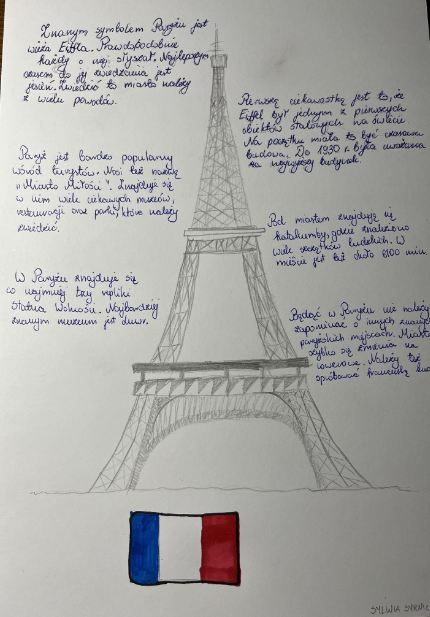 Znanym symbolem Paryża jest
wieża Eiffla. Prawdopodobnie
każdy o niej słyszał. Najlepszym
czasem do jej zwiedzania jest
jesień. Zwiedzić to miasto należy
z wielu powodów.
Pierwszą ciekawostką jest to, że
Eiffel był jednym z pierwszych
obiektów stalowych na świecie.
Na początku miała to być czasowa
budowa. Do 1930 r. była uważana
za najwyższy budynek.
Paryż jest bardzo popularny
wśród turystów. Nosi też nazwę
"Miasto Miłości". Znajduje się
w nim wiele ciekawych muzeów,
restauracji oraz parki, które należy
zwiedzić.
Pod miastem znajdują się
katakumby, gdzie znaleziono
wiele szczątków ludzkich. W
mieście jest też około
W Paryżu znajduje się
co najmniej trzy repliki
Statua Wolności. Najbardziej
znanym muzeum jest
Będąc w Paryżu nie należy
zapominać o innych znanych
paryskich miejscach. Miasto
szybko się zmienia na
Należy też
spróbować francuską
SYLWIA